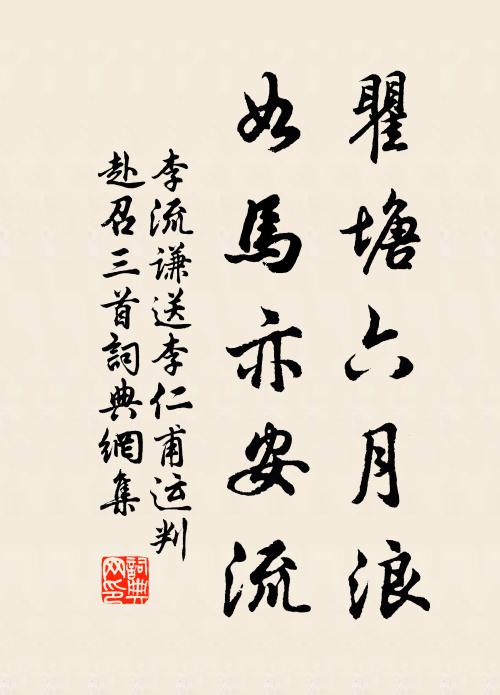 瞿塘六月浪
如馬亦安流
李流谦送李仁甫运判
赴召三首詞典網集
詞典网印